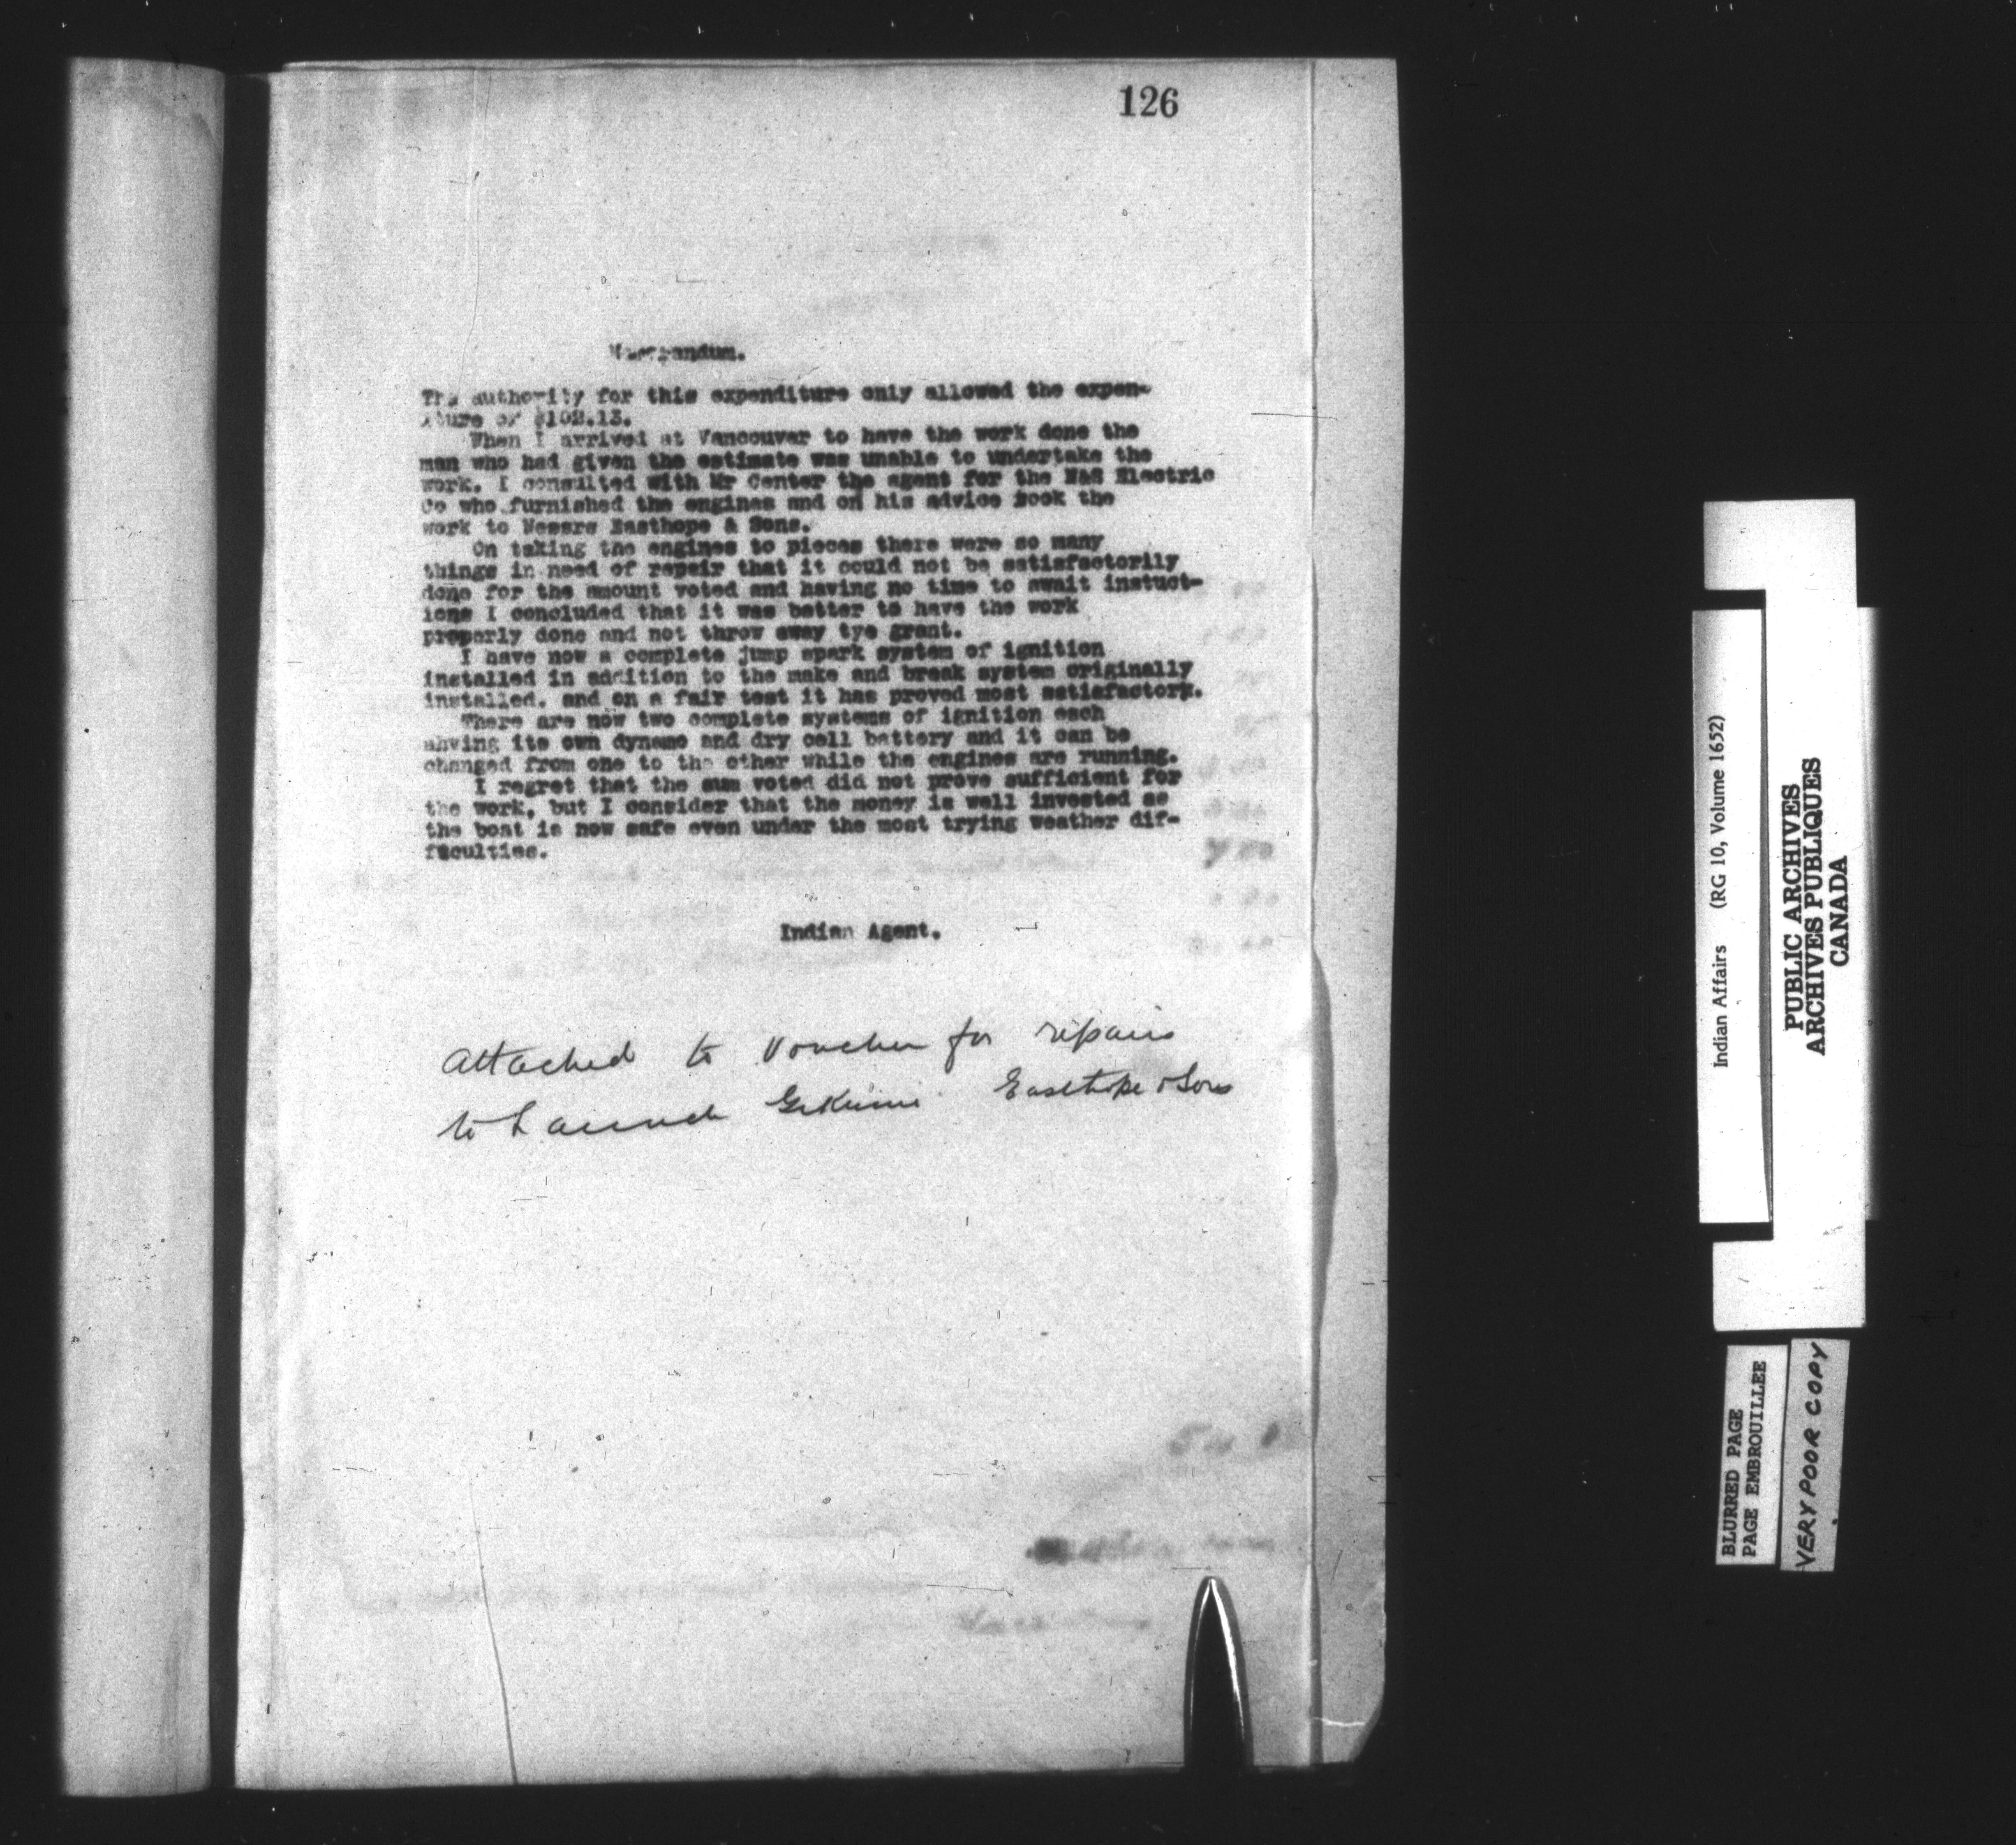 126
Memorandum.
The authority for this expenditure only allowed the expen-
iture of $102.13.
When I arrived at Vancouver to have the work done the
man who had given the estimate was unable to undertake the
work. I consulted with Mr Center the agent for the N&S Electric
Co who furnished the engines and on his advice took the
work to Messrs Easthope & Sons.
On taking the engines to pieces there were so many
things in need of repair that it could not be satisfactorily
done for the amount voted and having no time to await instuct-
ions I concluded that it was better to have the work
properly done and not throw away tye grant.
I have now a complete jump spark system of ignition
installed in addition to the make and break system originally
installed. and on a fair test it has proved most satisfactory.
There are now two complete systems of ignition each
ahving its own dynamo and dry cell battery and it can be
changed from one to the other while the engines are running.
I regret that the sum voted did not prove sufficient for
the work, but I consider that the money is well invested as
the boat is now safe even under the most trying weather dif-
faculties.
Indian Agent.
Attached to Voucher for repairs
to Launch Easthope & Sons
Indian Affairs (RG 10, Volume 1652)
PUBLIC ARCHIVES
ARCHIVES PUBLIQUES
CANADA
BLURRED PAGE
PAGE EMBROUILLEE
VERY POOR COPY